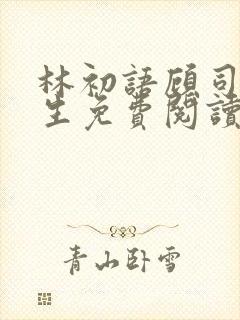 林初語顧司
生免費閱讀
青山卧雪